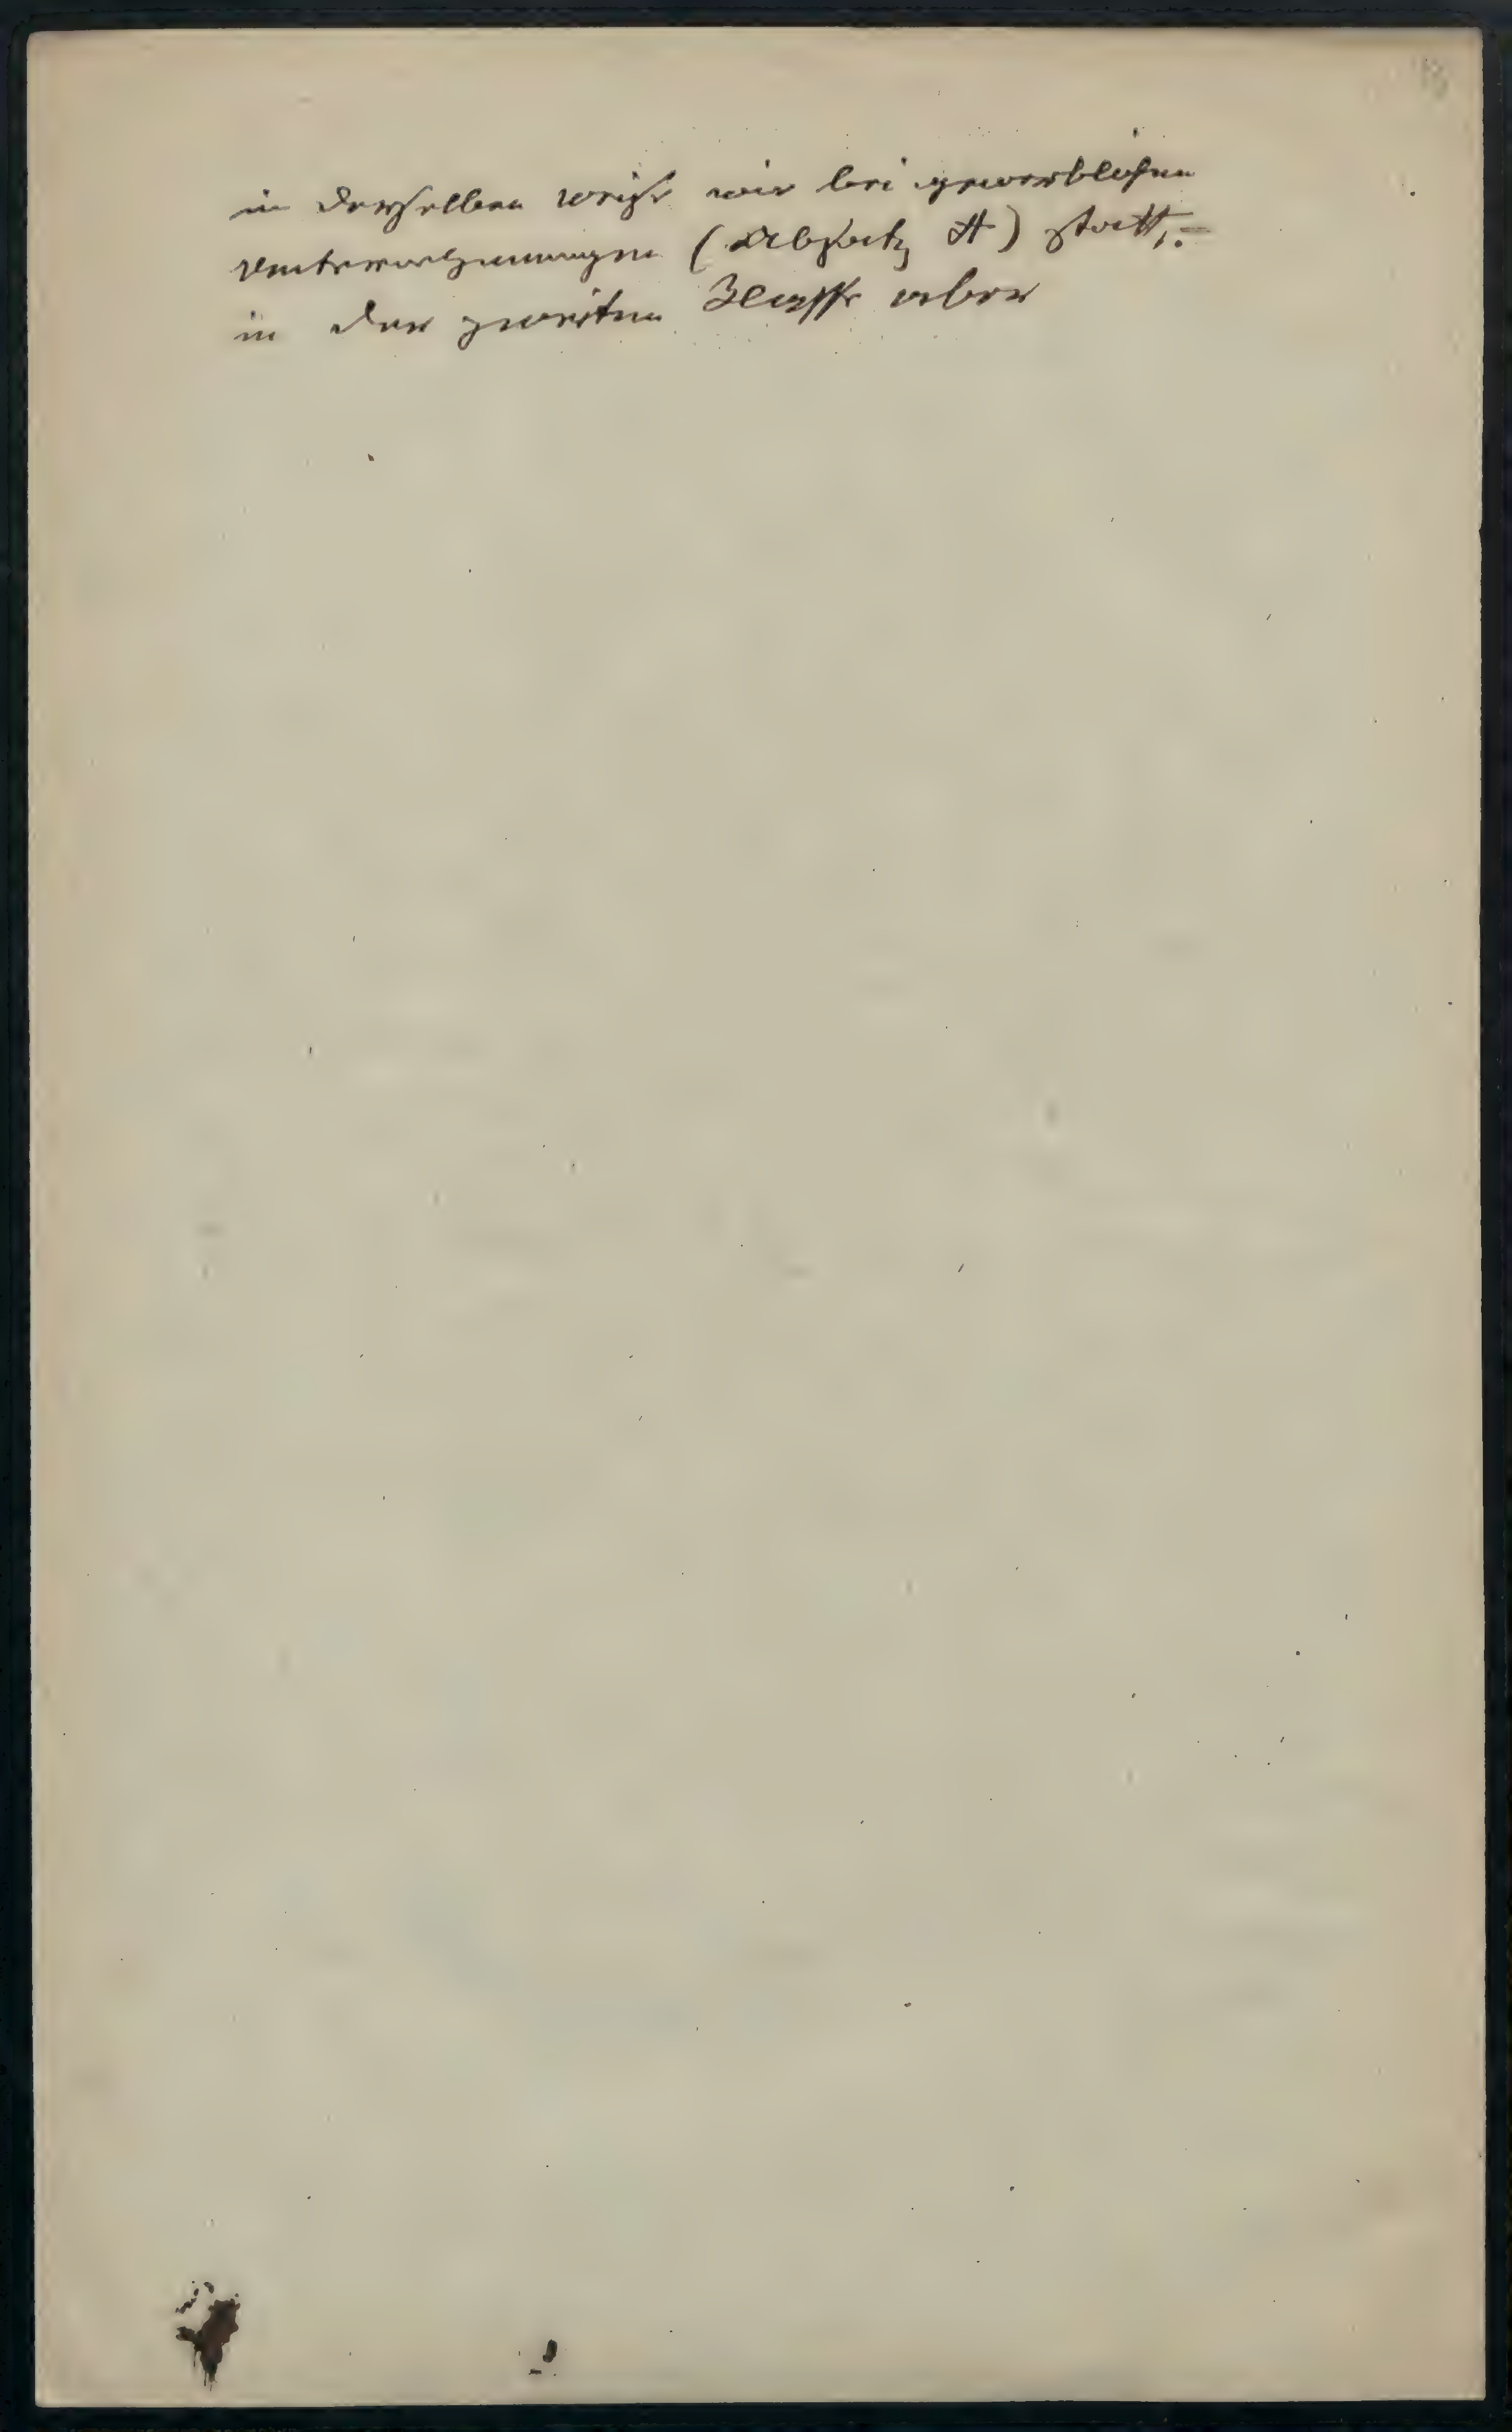 in derselben Weise wie bei gewerblichen
Unternehmungen (Absatz A) statt,
in der zweiten Klasse aber